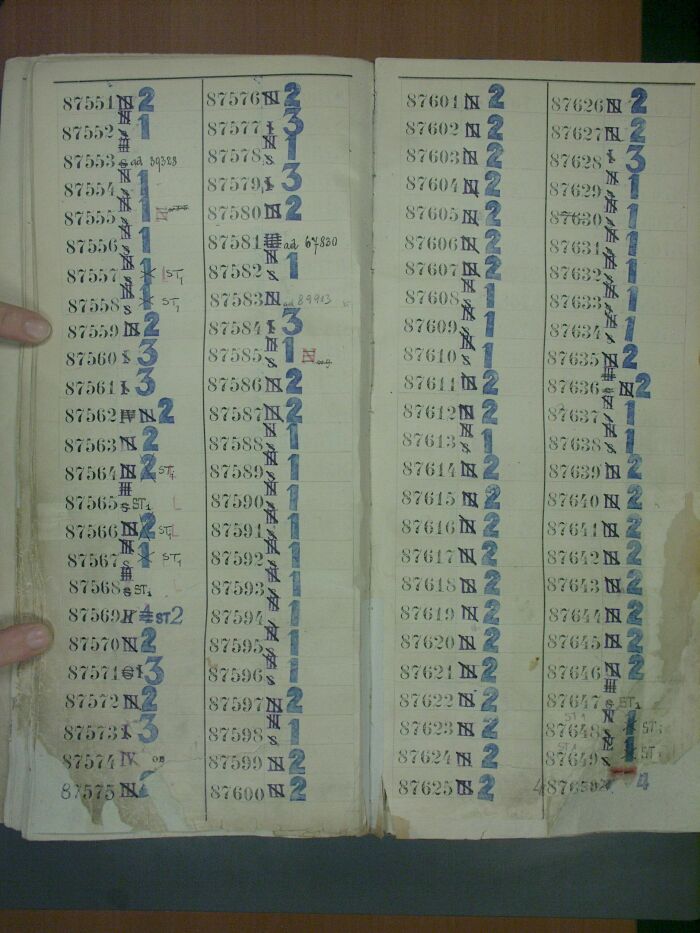 87551 N 2
87552 s 1
87553 s ad 39328
87554 s 1
87555 s 1 N
87556 s 1
87557 s 1 ST1
87558 s 1 ST1
87559 N 2
87560 I 3
87561 I 3
87562 N 2
87563 N 2
87564 N 2 ST
87565 s ST1 L
87566 N 2 ST L
87567 s 1 ST1
87568 s ST1 L
87569 4 ST2
87570 N 2
87571 3
87572 N 2
87573 I 3
87574 IV
87575 N 2
87576 N 2
87577 I 3
87578 s 1
87579 I 3
87580 N 2
87581 ad 67830
87582 s 1
87583 N ad 89913
87584 I 3
87585 s 1 N
87586 N 2
87587 N 2
87588 s 1
87589 s 1
87590 s 1
87591 s 1
87592 s 1
87593 s 1
87594 s 1
87595 s 1
87596 s 1
87597 N 2
87598 s 1
87599 N 2
87600 N 2
87601 N 2
87602 N 2
87603 N 2
87604 N 2
87605 N 2
87606 N 2
87607 N 2
87608 s 1
87609 s 1
87610 s 1
87611 N 2
87612 N 2
87613 s 1
87614 N 2
87615 N 2
87616 N 2
87617 N 2
87618 N 2
87619 N 2
87620 N 2
87621 N 2
87622 N 2
87623 N 2
87624 N 2
87625 N 2
87626 N 2
87627 N 2
87628 I 3
87629 s 1
87630 s 1
87631 s 1
87632 s 1
87633 s 1
87634 s 1
87635 N 2
87636 N 2
87637 s 1
87638 s 1
87639 N 2
87640 N 2
87641 N 2
87642 N 2
87643 N 2
87644 N 2
87645 N 2
87646 N 2
87647 s ST1
87648 s 1 ST1
87649 s 1 ST1
4 87650 4